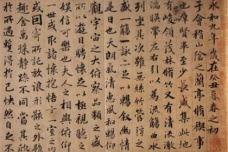 永和九年歲在癸丑暮春之初
于會稽山陰之蘭亭脩禊事
也群賢畢至少長咸集此地
峻領茂林脩竹又有清流激
湍暎帶左右引以為流觴曲水
列坐其次雖無絲竹管弦之
盛一觴一詠亦足以暢敘幽情
是日也天朗氣清惠風和暢仰
觀宇宙之大俯察品類之盛
所以遊目騁懷足以極視聽之
娛信可樂也夫人之相與俯仰
一世或取諸懷抱悟言一室之內
或因寄所託放浪形骸之外雖
趣舍萬殊靜躁不同當其欣
於所遇蹔得於己怏然自足